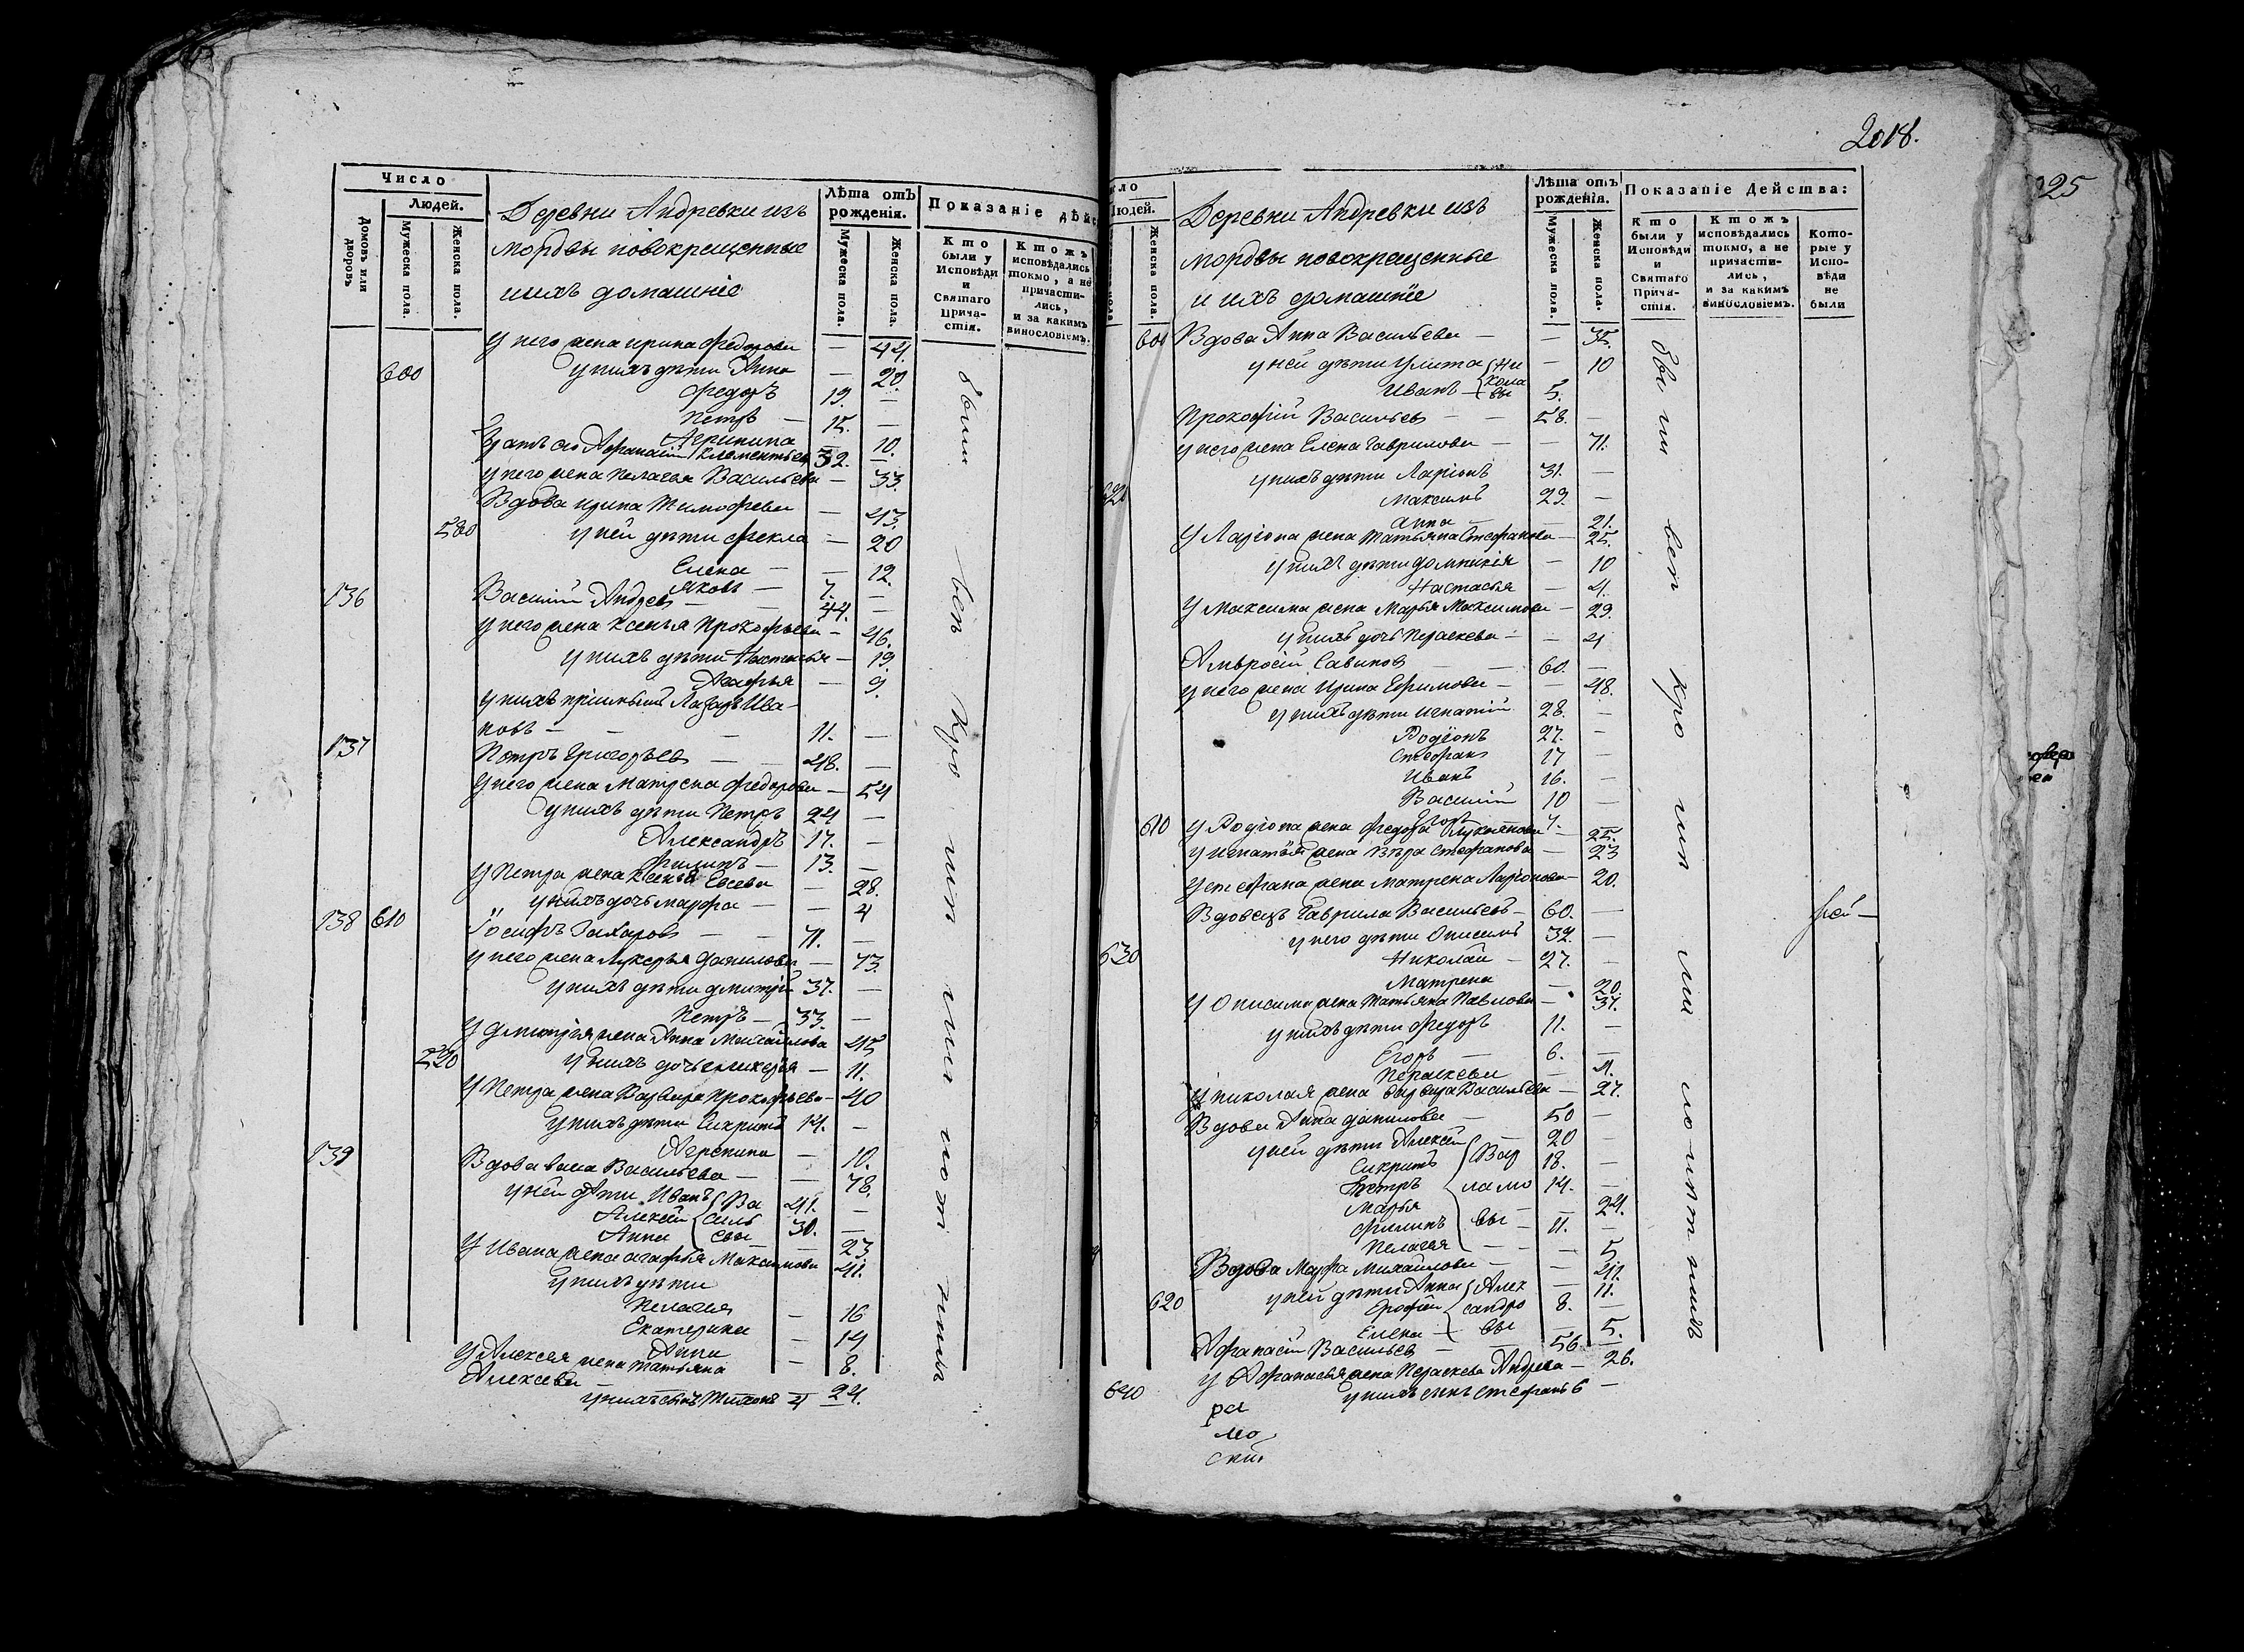 Число
Людей.
Домовъ или дворовъ
Мужеска пола.
Женска пола.
Деревни Андревки изъ
мордвы новокрещенные
и ихъ домашніе
Лѣта отъ рожденія.
Мужеска пола.
Женска пола.
Показаніе дѣйс
Кто были у Исповѣди и Святаго Прича-стія.
Ктожъ исповѣдались токмо, а не причасти-лись, и за какимъ винословіемъ.
У него жена Ирина Федорова — 44.
600 у нихъ дѣти Анна — 20
Федоръ 19. —
Петръ — 15. —
Агрипина — 10.
Зять его Афанасій Клементьевъ 32. —
У него жена Пелагья Васильева — 33.
Вдова Ирина Тимофеева — 43.
580 у ней дѣти Фекла — 20
Елена — — 12.
Яковъ — 7. —
136 Василій Андреевъ — 44. —
У него жена Ксенья Прокофьева — 46.
у нихъ дѣти Настасья — 19.
Агафья — 9.
У нихъ пріимышъ Лазарь Ива-
новъ — — 11. —
137 Петръ Григорьевъ — 48. —
У него жена Матрена Федорова — 54
у нихъ дѣти Петръ 24 —
Александръ 17. —
Филипъ — 13. —
У Петра жена Ксенья Евсева — 28.
у нихъ дочь Марфа — — 4
138 610 Іосифъ Захаровъ — 71. —
У него жена Лукерья Данилова — 73.
у нихъ дѣти Дмитрій 37. —
Петръ — 33. —
У Дмитрія жена Анна Михайлова 45
590 у нихъ дочь Гликерья — 11.
У Петра жена Варвара Прокофьева — 40
у нихъ дѣти Сидоръ 14. —
Агрепина — 10.
139 Вдова Васа Васильева — — 78.
у ней дѣти Иванъ Ва 41. —
Алексѣй силь 30. —
Анна евы — 23
У Ивана жена Агафья Максимова 41.
у нихъ дѣти
Пелагея — 16
Екатерина — 14
Анна — 8.
У Алексея жена Татьяна
Алексеева — 24.
у нихъ сынъ Тихонъ 4
были всѣ кро мѣ мало лѣтныхъ
2018.
25
ло
Людей.
Женска пола.
Деревни Андревки изъ
мордвы новокрещенные
и ихъ домашніе
Лѣта отъ рожденія.
Мужеска пола.
Женска пола.
Показаніе Дейсmва:
Кто были у Исповѣди и Святаго Прича-стія.
Ктожъ исповѣдались токмо, а не причасти-лись, и за какимъ винословіемъ.
Кото-рые у Испо-вѣди не были
601 Вдова Анна Васильева — — 35.
у ней дѣти Улита Ни — 10
Иванъ — кола евы 5.
Прокофій Васильевъ — — 58. —
У него жена Елена Гаврилова — — 71.
у нихъ дѣти Ларіонъ 31. —
620 Максимъ 29. —
Анна — — 21.
У Ларіона жена Татьяна Стефанова — 25.
у нихъ дѣти Домникія — 10
Настасья — 4.
У Максима жена Марья Максимова — 29.
у нихъ дочь Параскева — — 4
Амвросій Савиновъ — — 60. —
У него жена Ирина Ефимова — — 48.
у нихъ дѣти Игнатій 28. —
Родіонъ 27. —
Стефанъ 17 —
Иванъ 16. —
Василій 10 —
Егоръ 7. —
610 У Родіона жена Федора Лукьянова — 25.
У Игнатья жена Вѣра Стефанова — 23
У Стефана жена Матрена Ларіонова — 20.
Вдовецъ Гаврила Васильевъ — 60. —
у него дѣти Онисимъ 32. —
630 Николай — 27. —
Матрена — 20.
У Онисима жена Татьяна Павлова — 37.
у нихъ дѣти Федоръ 11. —
Егоръ — 6. —
Параскева — 4.
У Николая жена Варвара Васильева — 27.
Вдова Анна Данилова — 50 —
у ней дѣти Алексѣй Вар 20 —
18. —
Петръ ламо 14. —
Марья — 24.
Филипъ вы — 11. —
Пелагея — — 5.
Вдова Марфа Михайлова — — 41.
620 у ней дѣти Анна Алек — 11.
Ерофѣй сандро 8. —
Елена — вы — 5.
Афанасій Васильевъ — 56 —
У Афанасья жена Параскева Андреева — 26.
640 у нихъ сынъ Стефанъ 6 —
ра
мо
ский